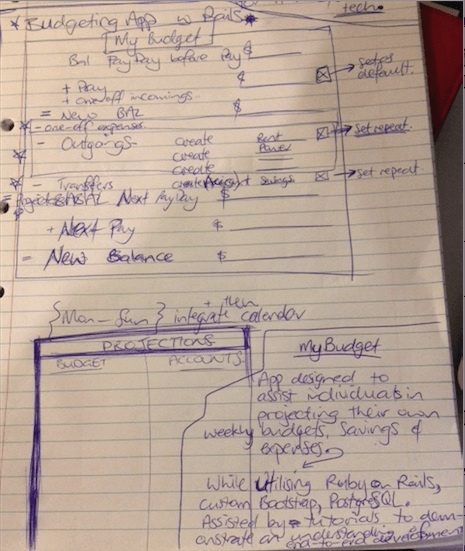 tech.
* Budgeting App w Rails *
My Budget
Bal Pay Day before Pay $
+ Pay $ → Set as default.
+ one-off incomings.
= New BAL $
* - one-off expenses.
- Outgoings create Rent → Set repeat.
create Power
create
* - Transfers create Account Savings → set repeat
= Projected BAL Next PayDay $
+ Next Pay $
= New Balance $
{Mon - Sun} + then integrate calendar
PROJECTIONS
BUDGET ACCOUNTS
My Budget
App designed to
assist individuals in
projecting their own
weekly budgets, Savings &
expenses.
While Utilising Ruby on Rails,
custom Bootstrap, PostgreSQL.
Assisted by tutorials to dem-
onstrate an understanding of
end-to-end development